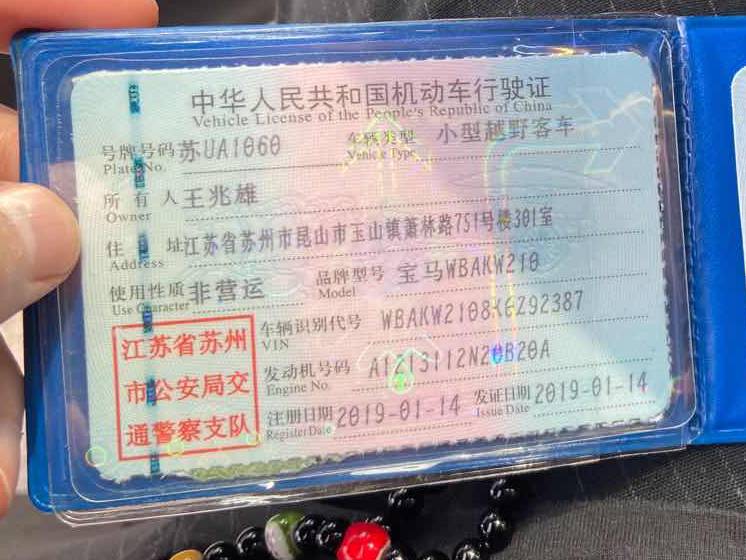 中华人民共和国机动车行驶证
Vehicle License of the People's Republic of China
号牌号码 苏UA1060 车辆类型 小型越野客车
Plate No. Vehicle Type
所有人 王兆雄
Owner
住址 江苏省苏州市昆山市玉山镇萧林路751号楼301室
Address
使用性质 非营运 品牌型号 宝马WBAKW210
Use Character Model
江苏省苏州
市公安局交
通警察支队
车辆识别代号 WBAKW2108K0Z92387
VIN
发动机号码 A1213112N20B20A
Engine No.
注册日期 2019-01-14 发证日期 2019-01-14
Register Date Issue Date